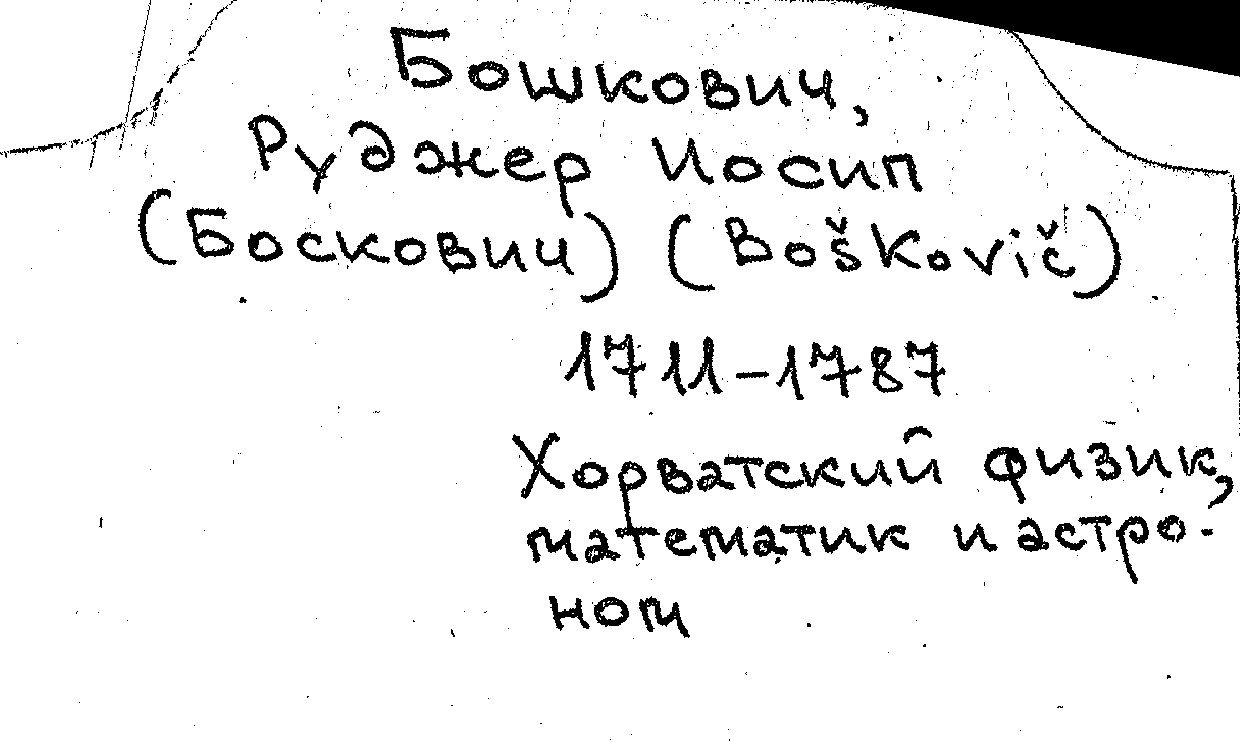 Бошкович,
Руджер Иосип
(Боскович) (Boškovič)
1711-1787
Хорватский физик,
математик и астро-
ном